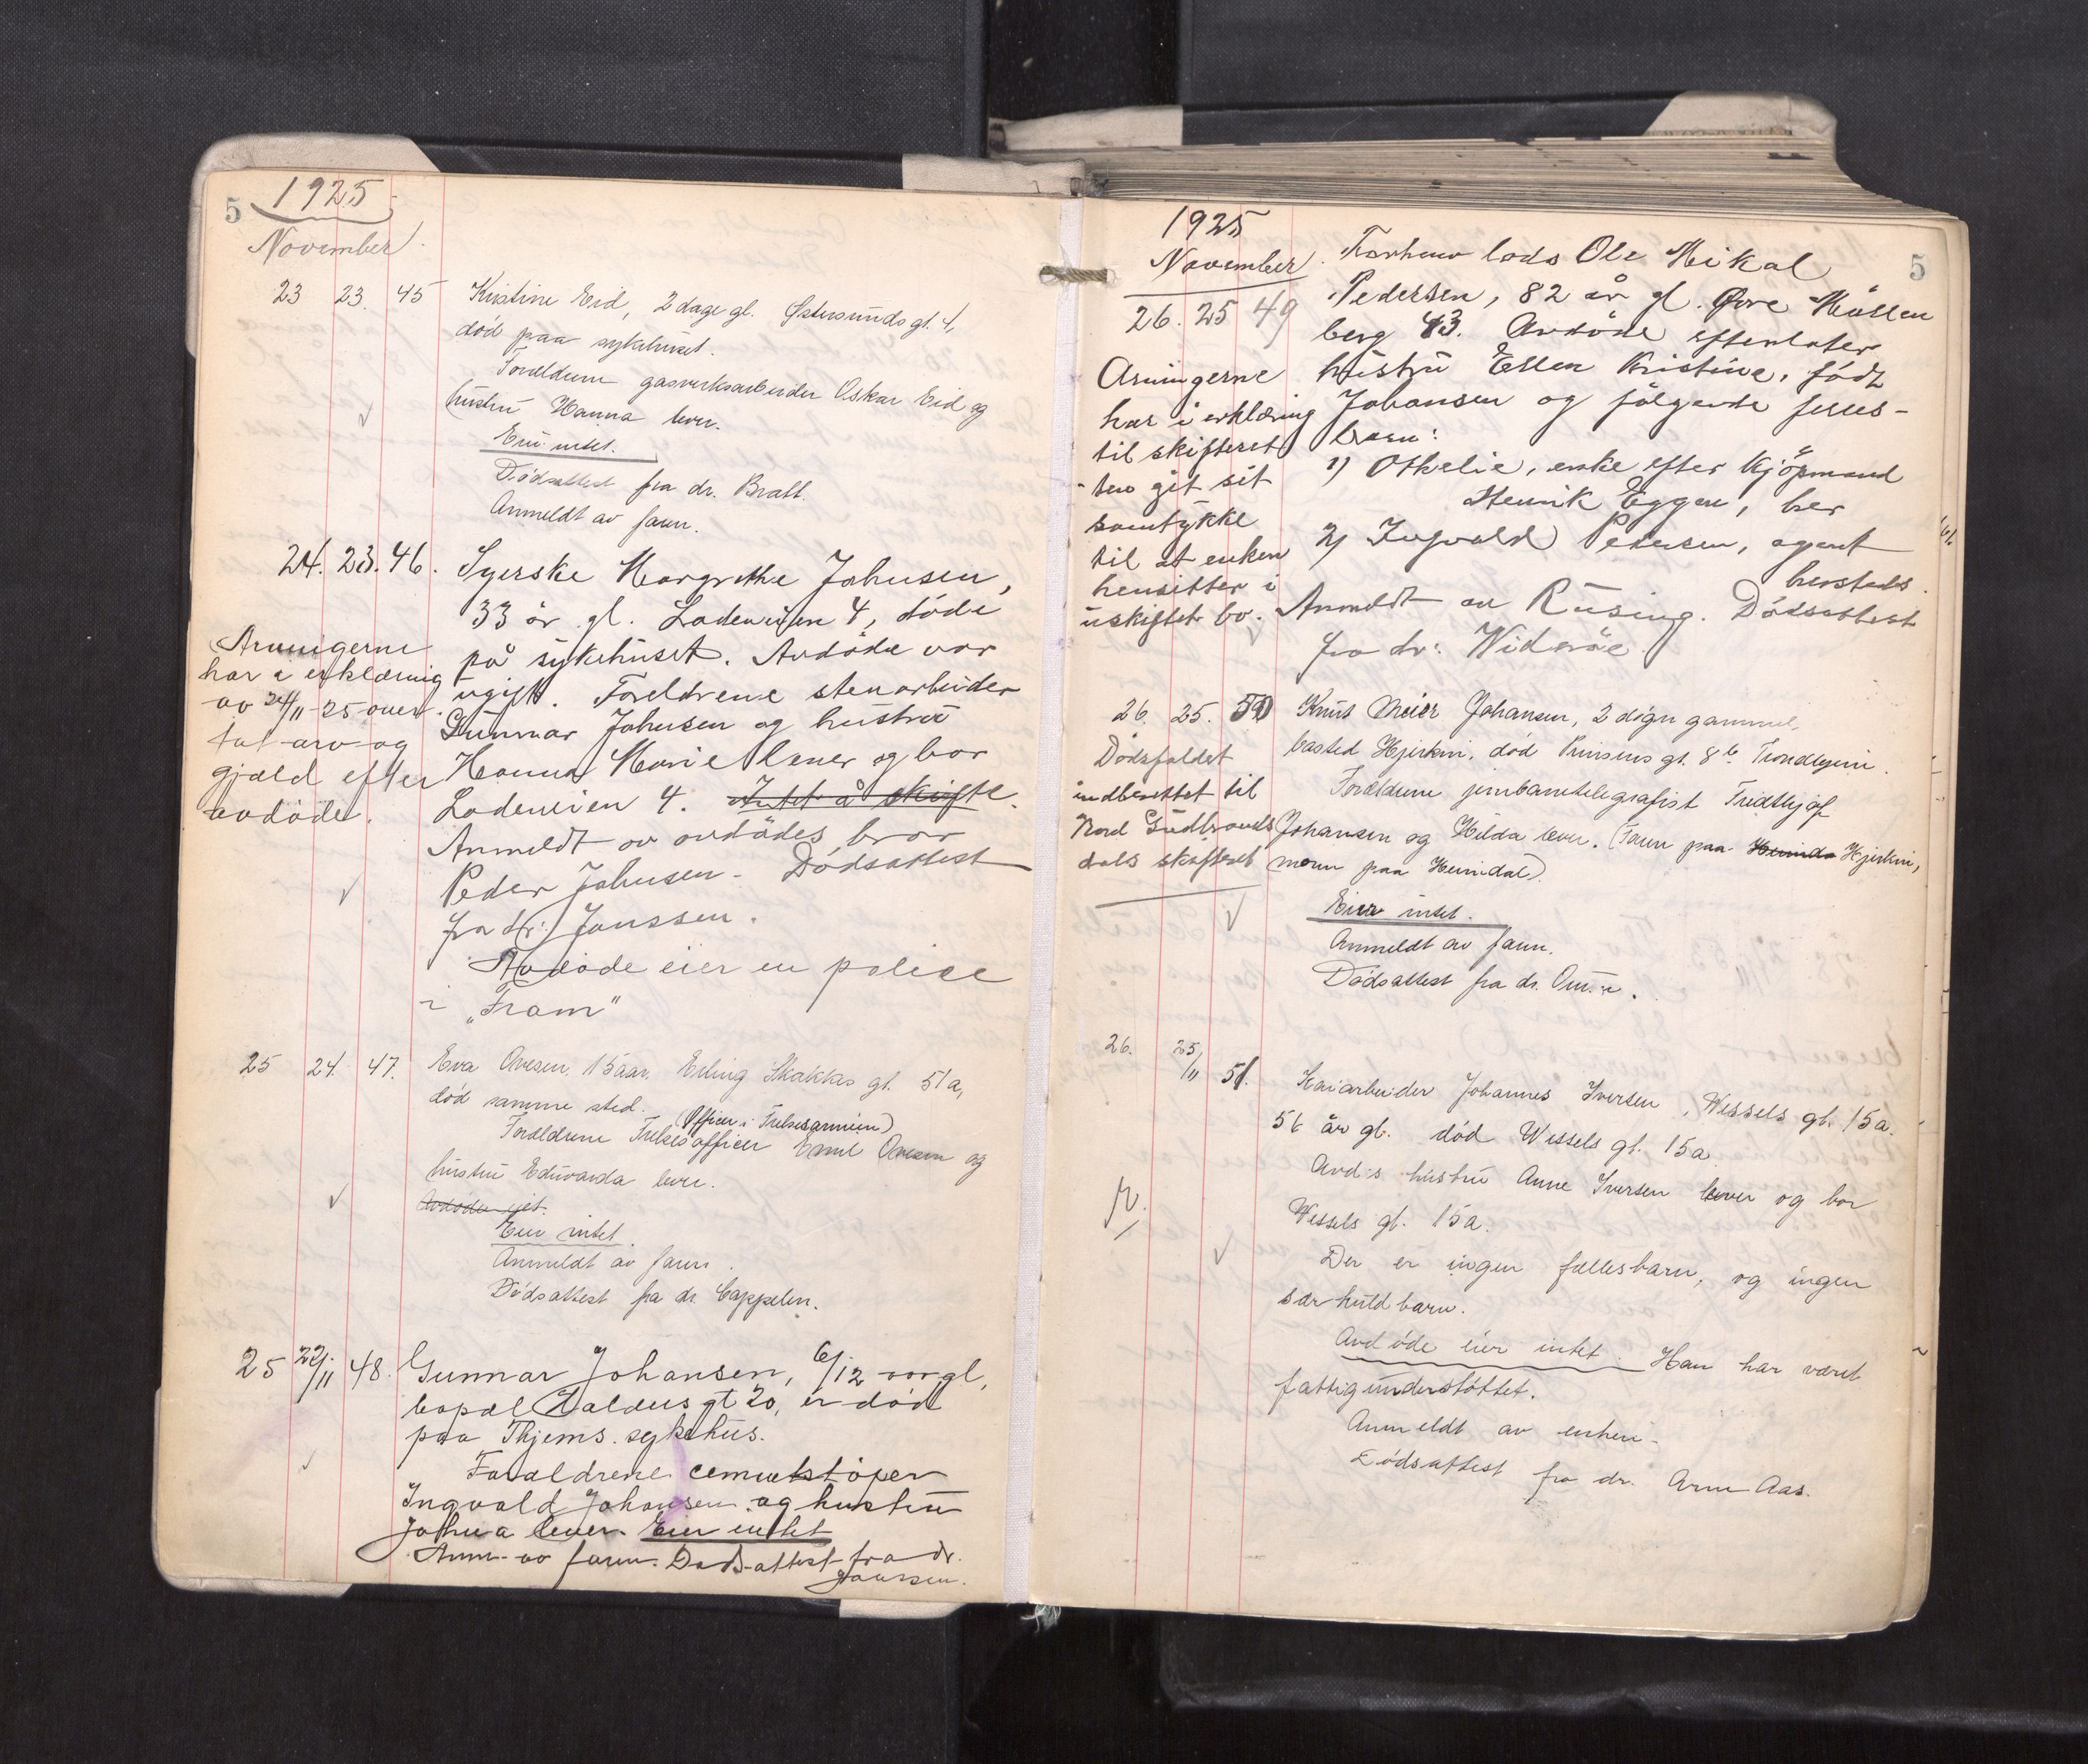 5
1925
November
23 23. 45 Kristine Eid, 2 dage gl. Østersunds gt. 4,
død paa sykehuset.
Forældrene gasverksarbeider Oskar Eid og
hustru Hanna lever.
Eier intet.
Dødsattest fra dr. Bratt.
Anmeldt av faren.
24. 23. 46. Syerske Margrethe Johnsen,
33 år gl. Ladeveien 4, döde
på sykehuset. Avdöde var
ugift. Foreldrene stenarbeider
Gunnar Johnsen og hustru
Hanna Marie lever og bor
Ladeveien 4. Intet å skifte.
Anmeldt av avdödes bror
Peder Johnsen. Dödsattest
fra dr. Janssen.
Avdöde eier en police
i „Fram"
Arvingerne
har i erklæring
av 24/11-25 over-
tat arv og
gjæld efter
avdöde.
25 24. 47. Eva Ovesen, 15 aar, Erling Skakkes gt. 51a,
død samme sted.
(Officer i Frelsesarmeen)
Forældrene Frelsesofficer Emil Ovesen og
hustru Edvarda lever.
Avdøde
Eier intet.
Anmeldt av faren.
Dödsattest fra dr. Cappelen.
25 22/11 48. Gunnar Johansen, 6/12 aar gl,
bopæl gt 20, er död
paa Thjems. sykehus.
Forældrene cementstöper
Ingvald Johansen og hustru
Johna lever. Eier intet
Anm. av faren. Dødsattest fra dr.
Janssen.
5
1925
November
26. 25 49 Forhenv lods Ole Mikal
Pedersen, 82 år gl. Övre Möllen
berg 43. Avdöde efterlater
hustru Ellen Kristine, födt
Johansen og fölgende felles-
barn:
1) Othelie, enke efter Kjöpmand
Henrik Eggen, her
2) Ingvald Pedersen, agent
hersteds.
Anmeldt av Rusing. Dödsattest
fra dr. Wideröe
Arvingerne
har i erklæring
til skifteret
ten git sit
samtykke
til at enken
hensitter i
uskiftet bo.
26. 25. 50 Knut Meier Johansen, 2 dögn gammel,
bosted Hjerkin, död Prinsens gt. 8b Trondhjem.
Forældrene jernbanetelegrafist Fridthjof
Johansen og Hilda lever. (Faren paa Heimda Hjerkin,
moren paa Heimdal).
Eier intet.
Anmeldt av faren.
Dödsattest fra dr.
Dödsfaldet
indberettet til
Nord Gudbrands
dals skifteret
26. 25/11 51. Kaiarbeider Johannes Iversen, Wessels gt. 15a.
56 år gl. död Wessels gt. 15a
Avd:s hustru Anne Iversen lever og bor
Wessels gt. 15a.
Der er ingen fællesbarn, og ingen
særkuldbarn.
Avdöde eier intet. Han har været
fattigunderstöttet.
Anmeldt av enken.
Dödsattest fra dr. Arne Aas.